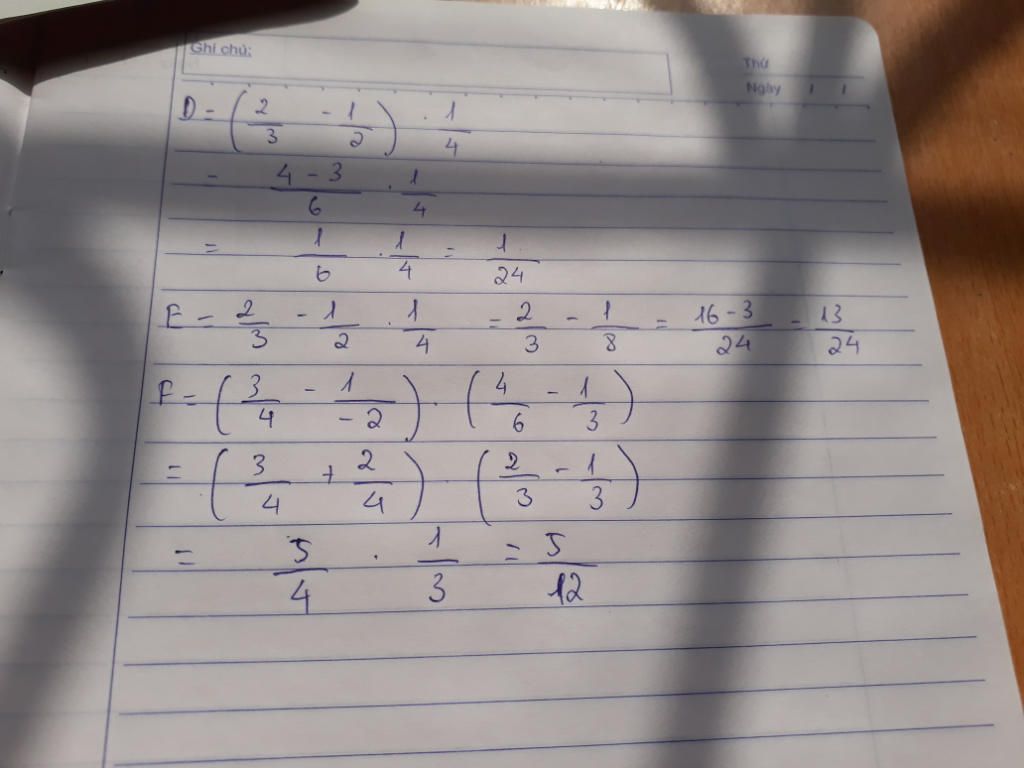 Ghi chú:
Thứ
Ngày / /
D = (2/3 - 1/2) . 1/4
= (4 - 3)/6 . 1/4
= 1/6 . 1/4 = 1/24
E = 2/3 - 1/2 . 1/4 = 2/3 - 1/8 = (16 - 3)/24 = 13/24
F = (3/4 - 1/-2) . (4/6 - 1/3)
= (3/4 + 2/4) . (2/3 - 1/3)
= 5/4 . 1/3 = 5/12